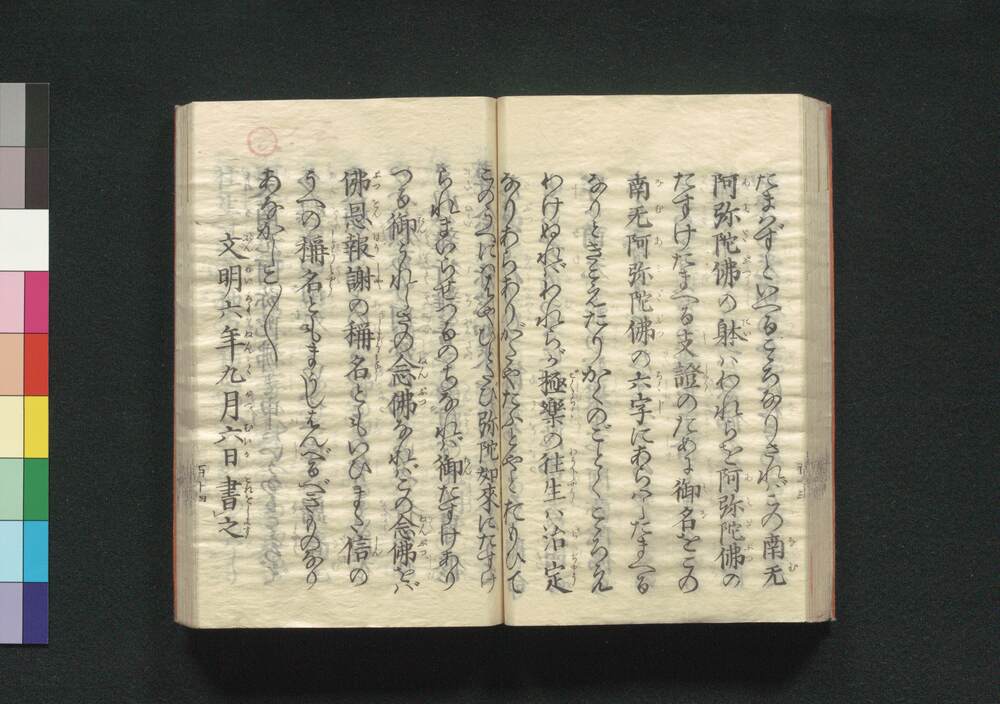 たまはずといへるこゝろなりされバこの南无
阿弥陀佛の躰ハわれらを阿弥陀佛の
たすけたまへる支證のために御名をこの
南无阿弥陀佛の六字にあらハしたまへる
なりときこえたりかくのごとくこゝろえ
わけぬれバわれらが極樂の往生ハ治定
なりあらありがたやたふとやとおもひて
このうへにハはやひとたび弥陀如來にたすけ
られまいらせつるのちなれバ御たすけあり
つる御うれしさの念佛なれバこの念佛をバ
佛恩報謝の稱名ともいひまた信の
うへの稱名とももうしはんべるべきものなり
あなかしこ〳〵
文明六年九月六日書之
百十三
百十四